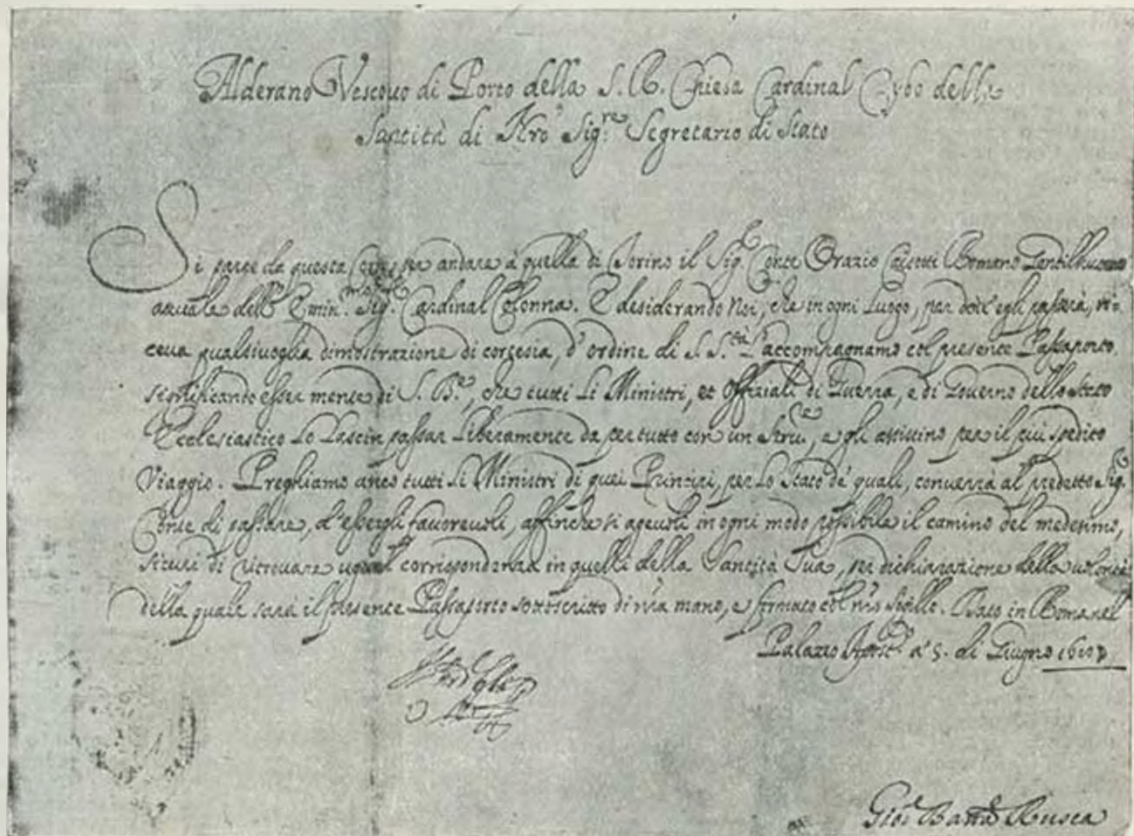 Alderano Vescouo di Porto della S. R. Chiesa Cardinal Cybo della
Santità di Nro Sig.re Segretario di Stato
Si parte da questa Corte per andare à quella di Torino il Sig.r Conte Orazio Romano Gentilhuomo
attuale dell' Emin.mo Sig.r Cardinal Colonna. E desiderando Noi, che in ogni luogo, per doue egli passarà, ri=
ceua qualsiuoglia dimostrazione di cortesia, d'ordine di S. S.tà l'accompagnamo col presente Passaporto,
significando esser mente di S. B.e, che tutti li Ministri, et Offiziali di Guerra, e di Gouerno dello Stato
Ecclesiastico lo lascin passar liberamente da per tutto con un Seru.e, e gli assistino per il più spedito
Viaggio. Preghiamo anco tutti li Ministri di quei Principi, per lo Stato de' quali, conuerrà al predetto Sig.r
Conte di passare, d'essergli fauoreuoli, affinche si ageuoli in ogni modo possibile il camino del medesimo,
sicuri di ritrouare ugual corrispondenza in quelli della Santità Sua, per dichiarazione della uolontà
della quale sarà il presente Passaporto sottoscritto di nra mano, e firmato col nro Sigillo. Dato in Roma nel
Palazzo Apost.o a' 5. di Giugno
Gio. Batt.a Rusca